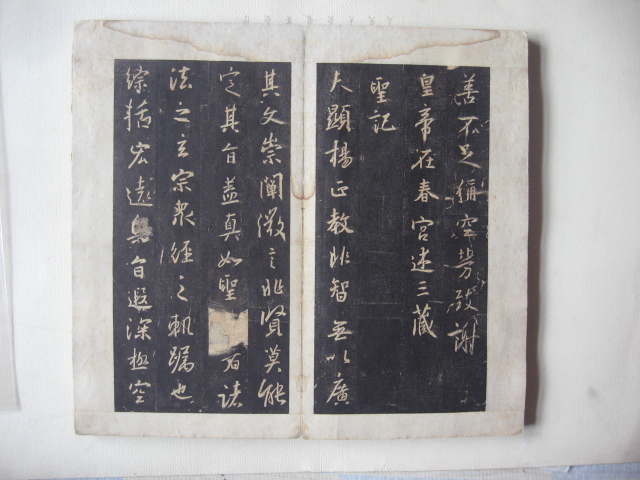 善不足稱空勞致謝
皇帝在春宮述三藏
聖記
夫顯揚正教非智無以廣
其文崇闡微言非賢莫能
定其旨蓋真如聖者諸
法之玄宗眾經之軌躅也
綜括宏遠奧旨遐深極空